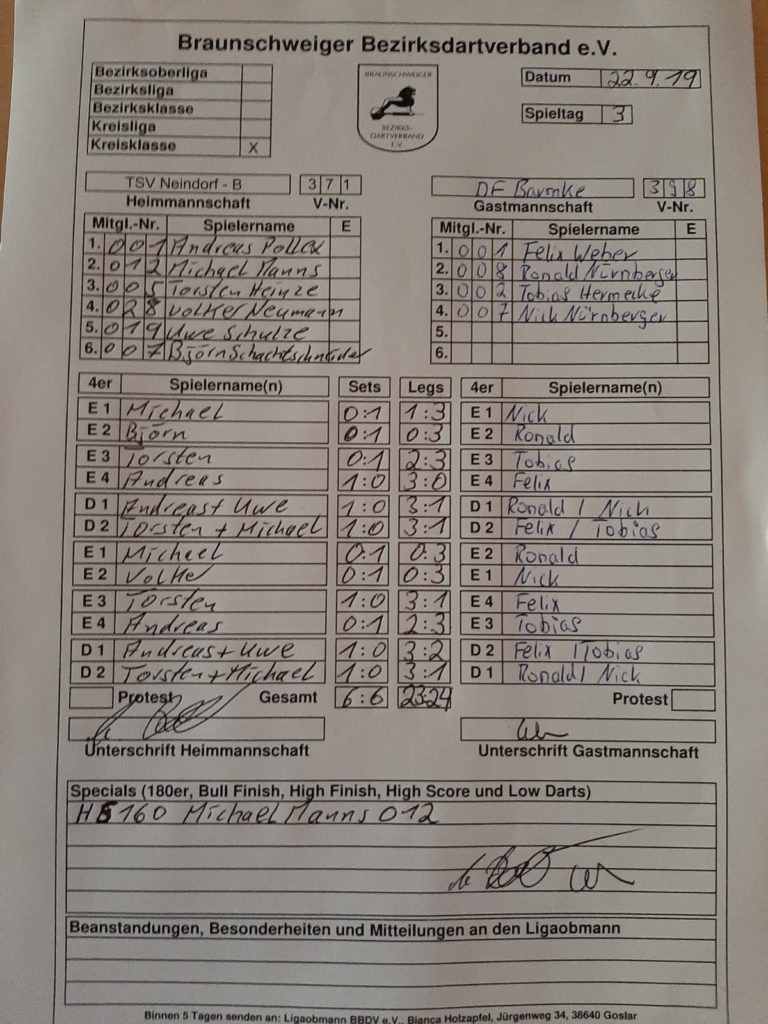 Braunschweiger Bezirksdartverband e.V.
Bezirksoberliga
Bezirksliga
Bezirksklasse
Kreisliga
Kreisklasse X
BRAUNSCHWEIGER
BEZIRKS-
DARTVERBAND
E.V.
Datum 22.9.19
Spieltag 3
TSV Neindorf - B 371
Heimmannschaft V-Nr.
DF Barmke 398
Gastmannschaft V-Nr.
Mitgl.-Nr. Spielername E
1. 001 Andreas Pollex
2. 012 Michael Manns
3. 005 Torsten Heinze
4. 028 Volker Neumann
5. 019 Uwe Schulze
6. 007 Björn Schachtschneider
Mitgl.-Nr. Spielername E
1. 001 Felix Weber
2. 008 Ronald Nürnberger
3. 002 Tobias Hermecke
4. 007 Nick Nürnberger
5.
6.
4er Spielername(n) Sets Legs 4er Spielername(n)
E 1 Michael 0:1 1:3 E 1 Nick
E 2 Björn 0:1 0:3 E 2 Ronald
E 3 Torsten 0:1 2:3 E 3 Tobias
E 4 Andreas 1:0 3:0 E 4 Felix
D 1 Andreas+ Uwe 1:0 3:1 D 1 Ronald / Nick
D 2 Torsten + Michael 1:0 3:1 D 2 Felix / Tobias
E 1 Michael 0:1 0:3 E 2 Ronald
E 2 Volker 0:1 0:3 E 1 Nick
E 3 Torsten 1:0 3:1 E 4 Felix
E 4 Andreas 0:1 2:3 E 3 Tobias
D 1 Andreas+Uwe 1:0 3:2 D 2 Felix / Tobias
D 2 Torsten+Michael 1:0 3:1 D 1 Ronald / Nick
Protest Gesamt 6:6 23:24 Protest
Unterschrift Heimmannschaft Unterschrift Gastmannschaft
Specials (180er, Bull Finish, High Finish, High Score und Low Darts)
HS 160 Michael Manns 012
Beanstandungen, Besonderheiten und Mitteilungen an den Ligaobmann
Binnen 5 Tagen senden an: Ligaobmann BBDV e.V., Bianca Holzapfel, Jürgenweg 34, 38640 Goslar